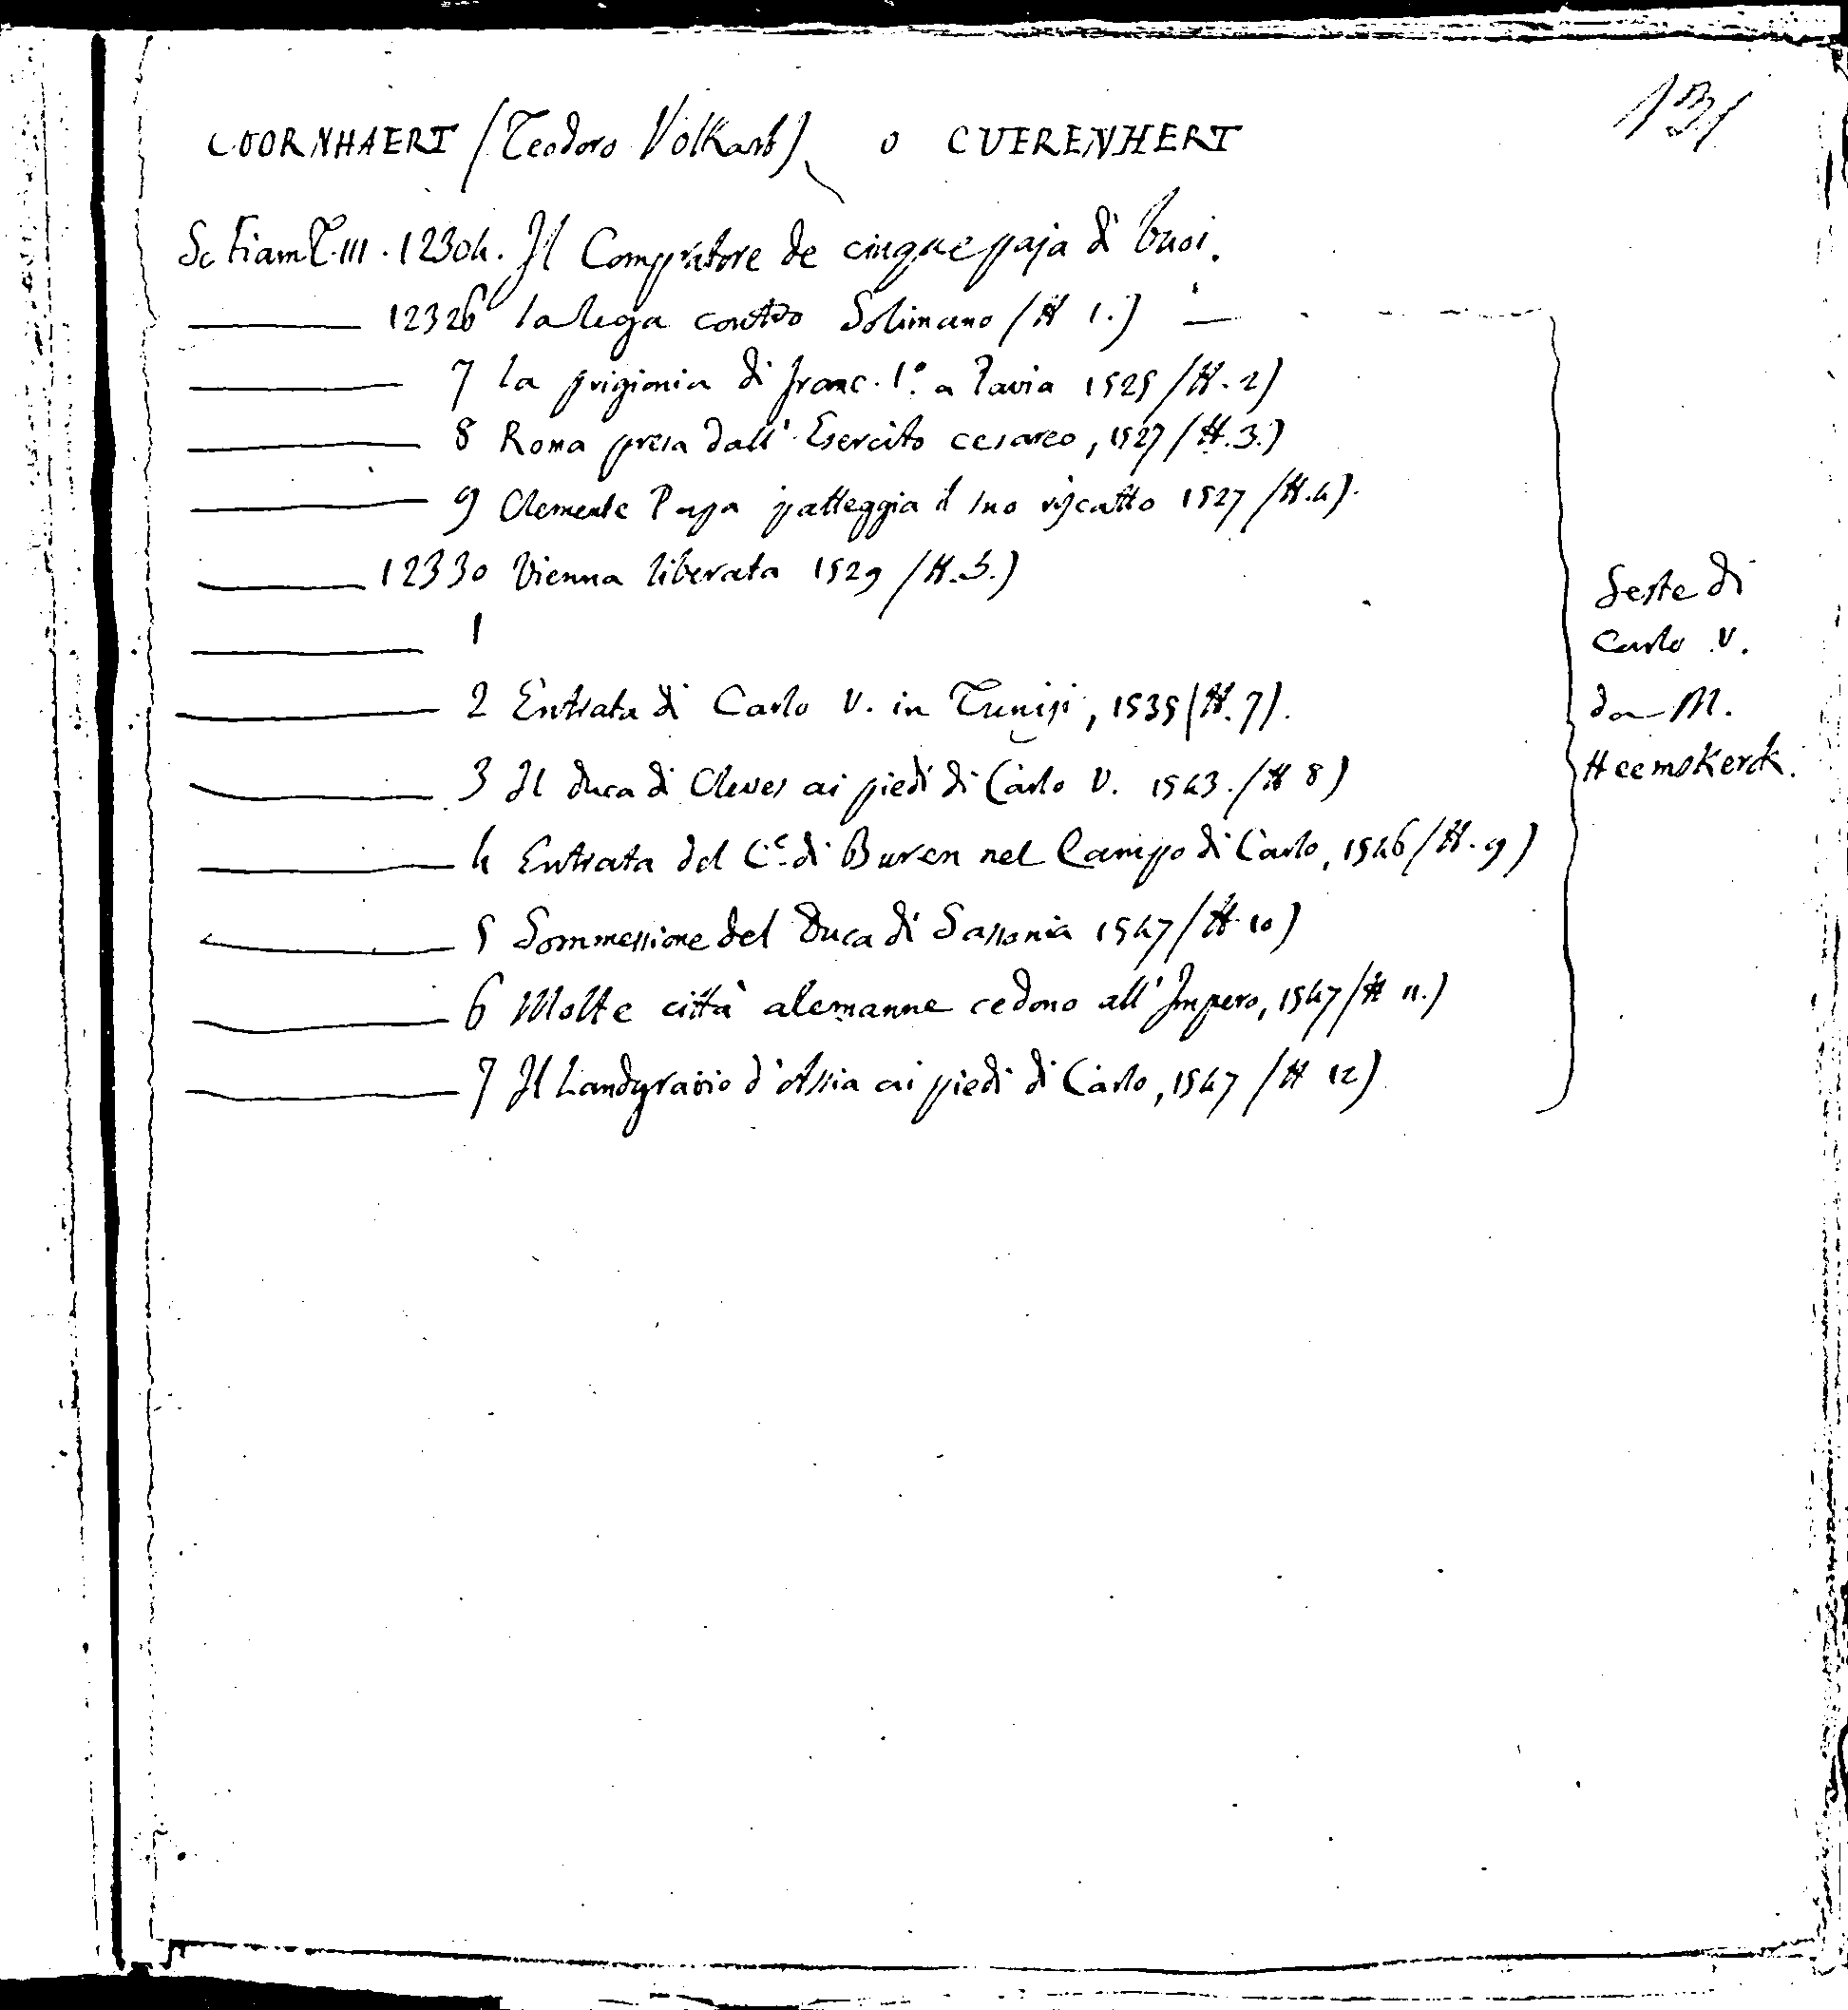 131
COORNHAERT (Teodoro Volkart) o CUERENHERT
Sc Fiam T. III. 12304. Il Compratore de cinque paja di buoi.
12326 la lega contro Solimano (N 1.)
7 la prigionia di franc. 1º. a Pavia 1525 (N. 2)
8 Roma presa dall' Esercito cesareo, 1527 (N. 3.)
9 Clemente Papa patteggia il suo riscatto 1527 (N. 4).
12330 Vienna liberata 1529 (N. 5.)
1
2 Entrata di Carlo V. in Tunisi, 1535 (N. 7).
3 Il Duca di Cleves ai piedi di Carlo V. 1543. (N 8)
4 Entrata del C.e di Buren nel Campo di Carlo, 1546 (N. 9)
5 Sommessione del Duca di Sassonia 1547 (N 10)
6 Molte città alemanne cedono all' Impero, 1547 (N 11.)
7 Il Landgravio d'Assia ai piedi di Carlo, 1547 (N 12)
Geste di
Carlo V.
da M.
Heemskerck.